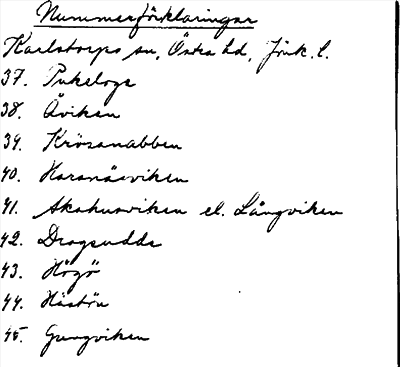 Nummerförklaringar
Karlstorps sn, Östra hd, Jönk. l.
37. Pukeloge
38. Åviken
39. Krösanabben
40. Haranäsviken
41. Akahusviken el. Långviken
42. Dragsudde
43. Högö
44. Hästön
45. Gungviken